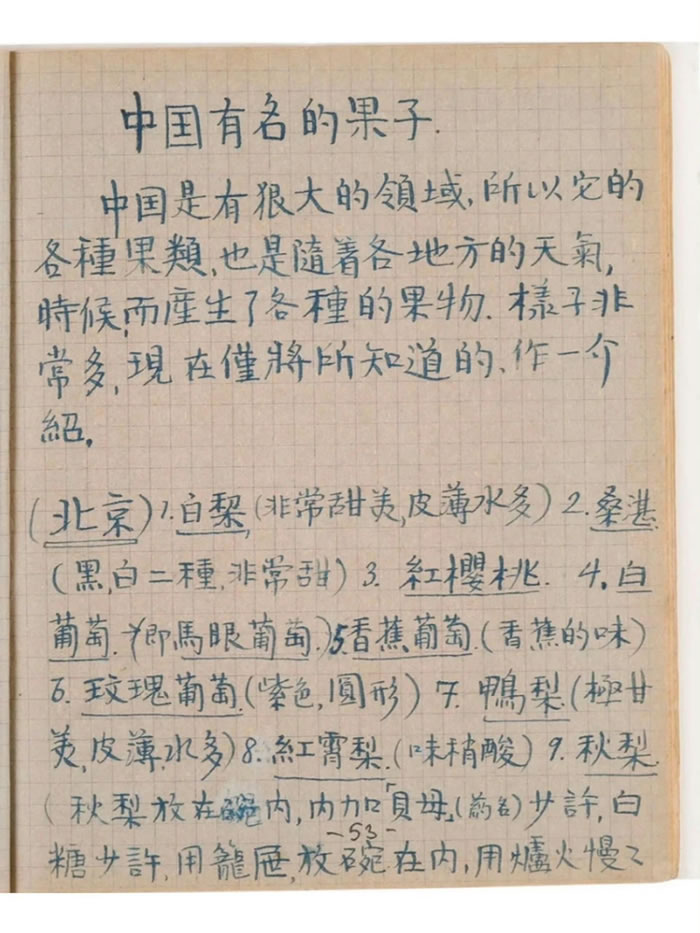 中国有名的果子.
中国是有狠大的領域,所以它的
各種果類,也是隨着各地方的天氣,
時候,而產生了各種的果物.樣子非
常多,現在僅將所知道的、作一介
紹。
(北京)1.白梨,(非常甜美,皮薄水多)2.桑湛.
(黑,白二種,非常甜)3.紅櫻桃.4.白
葡萄.(即馬眼葡萄.)5.香蕉葡萄.(香蕉的味)
6.玟瑰葡萄.(紫色,圓形)7.鴨梨.(極甘
美,皮薄,水多)8.紅霄梨.(味稍酸)9.秋梨.
(秋梨放在碗内,内加「貝母」(药名)少許,白
-53-
糖少許,用籠屉,放碗在内,用爐火慢々